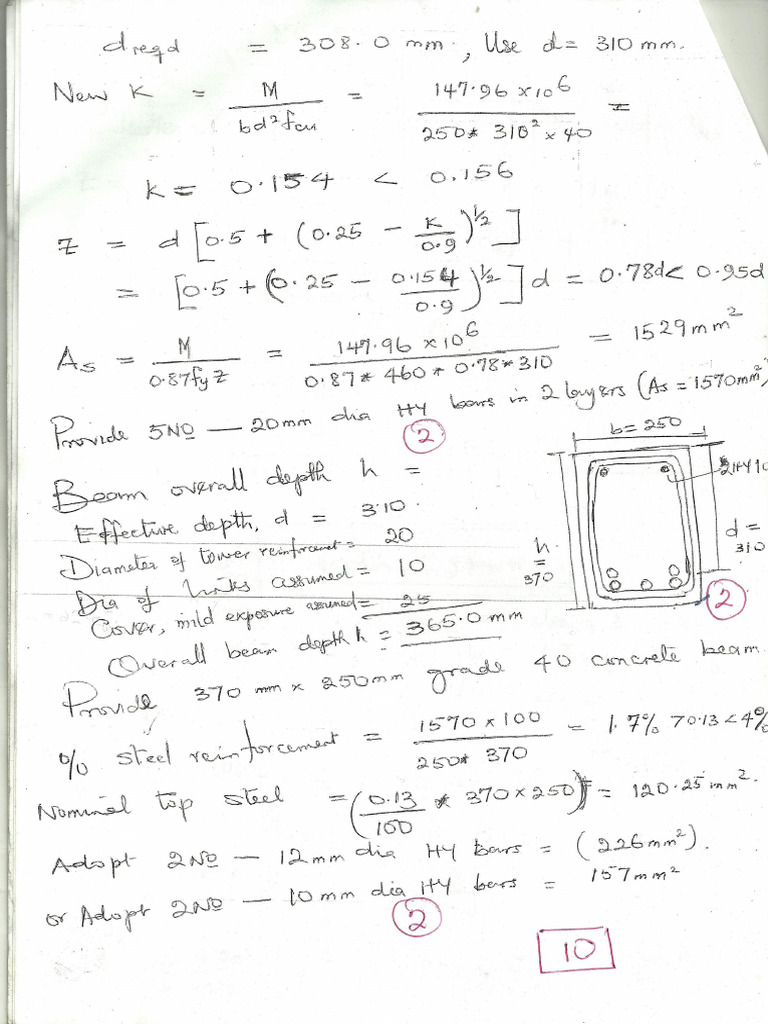 dreqd = 308.0 mm, Use d = 310 mm.
New K = M / bd²fcu = 147.96 × 10⁶ / 250* 310² × 40 =
k = 0.154 < 0.156
Z = d [0.5 + (0.25 - K/0.9)^½]
= [0.5 + (0.25 - 0.154/0.9)^½] d = 0.78d < 0.95d
As = M / 0.87fyZ = 147.96 × 10⁶ / 0.87* 460 * 0.78*310 = 1529 mm²
Provide 5NO — 20mm dia HY bars in 2 layers (As = 1570mm²)
2
b = 250
2HY10
h = 370
d = 310
2
Beam overall depth h =
Effective depth, d = 310.
Diameter of tower reinforcemet = 20
Dia of links assumed = 10
Cover, mild exposure assumed = 25
Overall beam depth h = 365.0 mm
Provide 370 mm × 250mm grade 40 concrete beam
% steel reinforcement = 1570 × 100 / 250* 370 = 1.7% 70.13 < 4%
Nominal top steel = (0.13/100 * 370 × 250) = 120.25 mm².
Adopt 2NO — 12mm dia HY bars = (226mm²).
or Adopt 2NO — 10mm dia HY bars = 157mm²
2
10